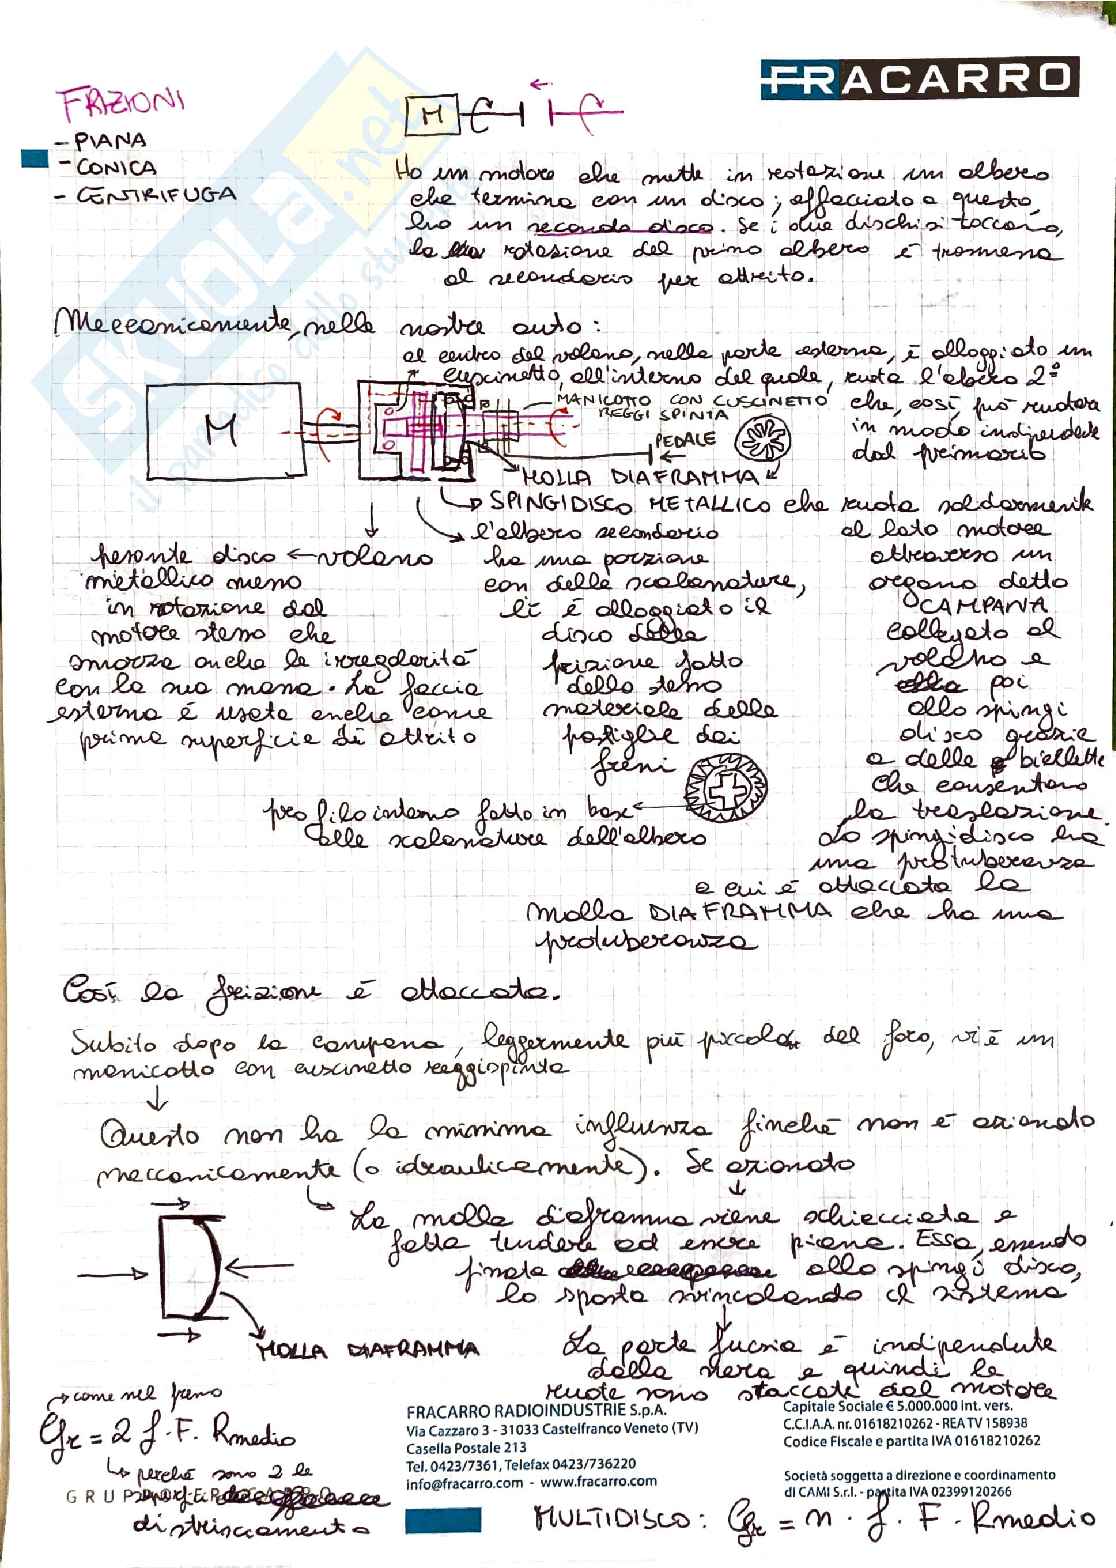 FRACARRO
FRIZIONI
- PIANA
- CONICA
- CENTRIFUGA
M
Ho un motore che mette in rotazione un albero
che termina con un disco; affacciato a questo,
ho un secondo disco. Se i due dischi si toccano,
la rotazione del primo albero è trasmessa
al secondario per attrito.
Meccanicamente, nelle nostre auto:
al centro del volano, nella parte esterna, è alloggiato un
cuscinetto, all'interno del quale, ruota l'albero 2º
che, così, può ruotare
in modo indipendente
dal primario
M
MANICOTTO CON CUSCINETTO
REGGI SPINTA
PEDALE
MOLLA DIAFRAMMA
SPINGIDISCO METALLICO che ruota solidarmente
al lato motore
attraverso un
organo detto
CAMPANA
collegato al
volano e
poi
allo spingi
disco grazie
a delle biellette
che consentono
la traslazione.
Lo spingidisco ha
una protuberanza
a cui è attaccata la
molla DIAFRAMMA che ha una
protuberanza
l'albero secondario
ha una porzione
con delle scalanature,
lì è alloggiato il
disco della
frizione fatto
dello stesso
materiale delle
pastiglie dei
freni
volano
pesante disco
metallico messo
in rotazione dal
motore stesso che
smorza anche le irregolarità
con la sua massa. La faccia
esterna è usata anche come
prima superficie di attrito
profilo interno fatto in base
alle scalanature dell'albero
Così la frizione è attaccata.
Subito dopo la campana, leggermente più piccola del foro, vi è un
manicotto con cuscinetto reggispinta
Questo non ha la minima influenza finché non è azionato
meccanicamente (o idraulicamente). Se azionato
La molla diaframma viene schiacciata e
fatta tendere ad essere piana. Essa, essendo
fissata allo spingi disco,
lo sposta svincolando il sistema
MOLLA DIAFRAMMA
La parte fucsia è indipendente
dalla nera e quindi le
ruote sono staccate dal motore
come nel freno
= 2 f · F · Rmedio
perché sono 2 le
di strisciamento
FRACARRO RADIOINDUSTRIE S.p.A.
Via Cazzaro 3 - 31033 Castelfranco Veneto (TV)
Casella Postale 213
Tel. 0423/7361, Telefax 0423/736220
info@fracarro.com - www.fracarro.com
Capitale Sociale € 5.000.000 int. vers.
C.C.I.A.A. nr. 01618210262 - REA TV 158938
Codice Fiscale e partita IVA 01618210262
Società soggetta a direzione e coordinamento
di CAMI S.r.l. - partita IVA 02399120266
MULTIDISCO: = n · f · F · Rmedio
SKUOLA.net